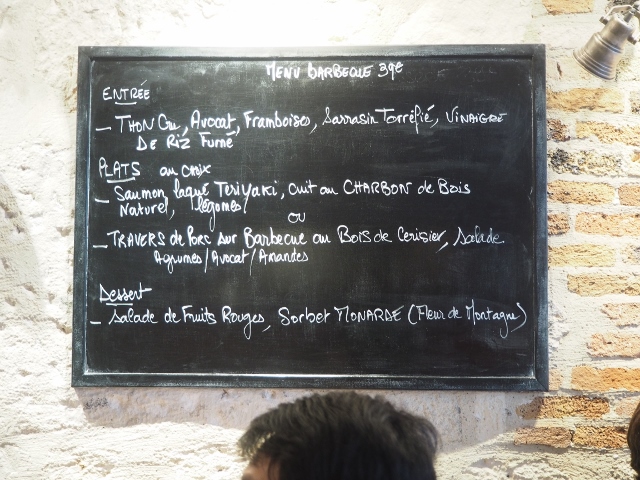 MENU BARBECUE 39€
ENTRÉE
– THON CRU, Avocat, Framboises, Sarrasin Torréfié, VINAIGRE
DE RIZ FUMÉ
PLATS au CHOIX
– Saumon laqué TERIYAKI, cuit au CHARBON de Bois
Naturel, légumes
ou
– TRAVERS de Porc sur Barbecue au Bois de Cerisier, Salade
Agrumes/Avocat/Amandes
Dessert
– Salade de Fruits Rouges, Sorbet MONARDE (Fleur de Montagne)